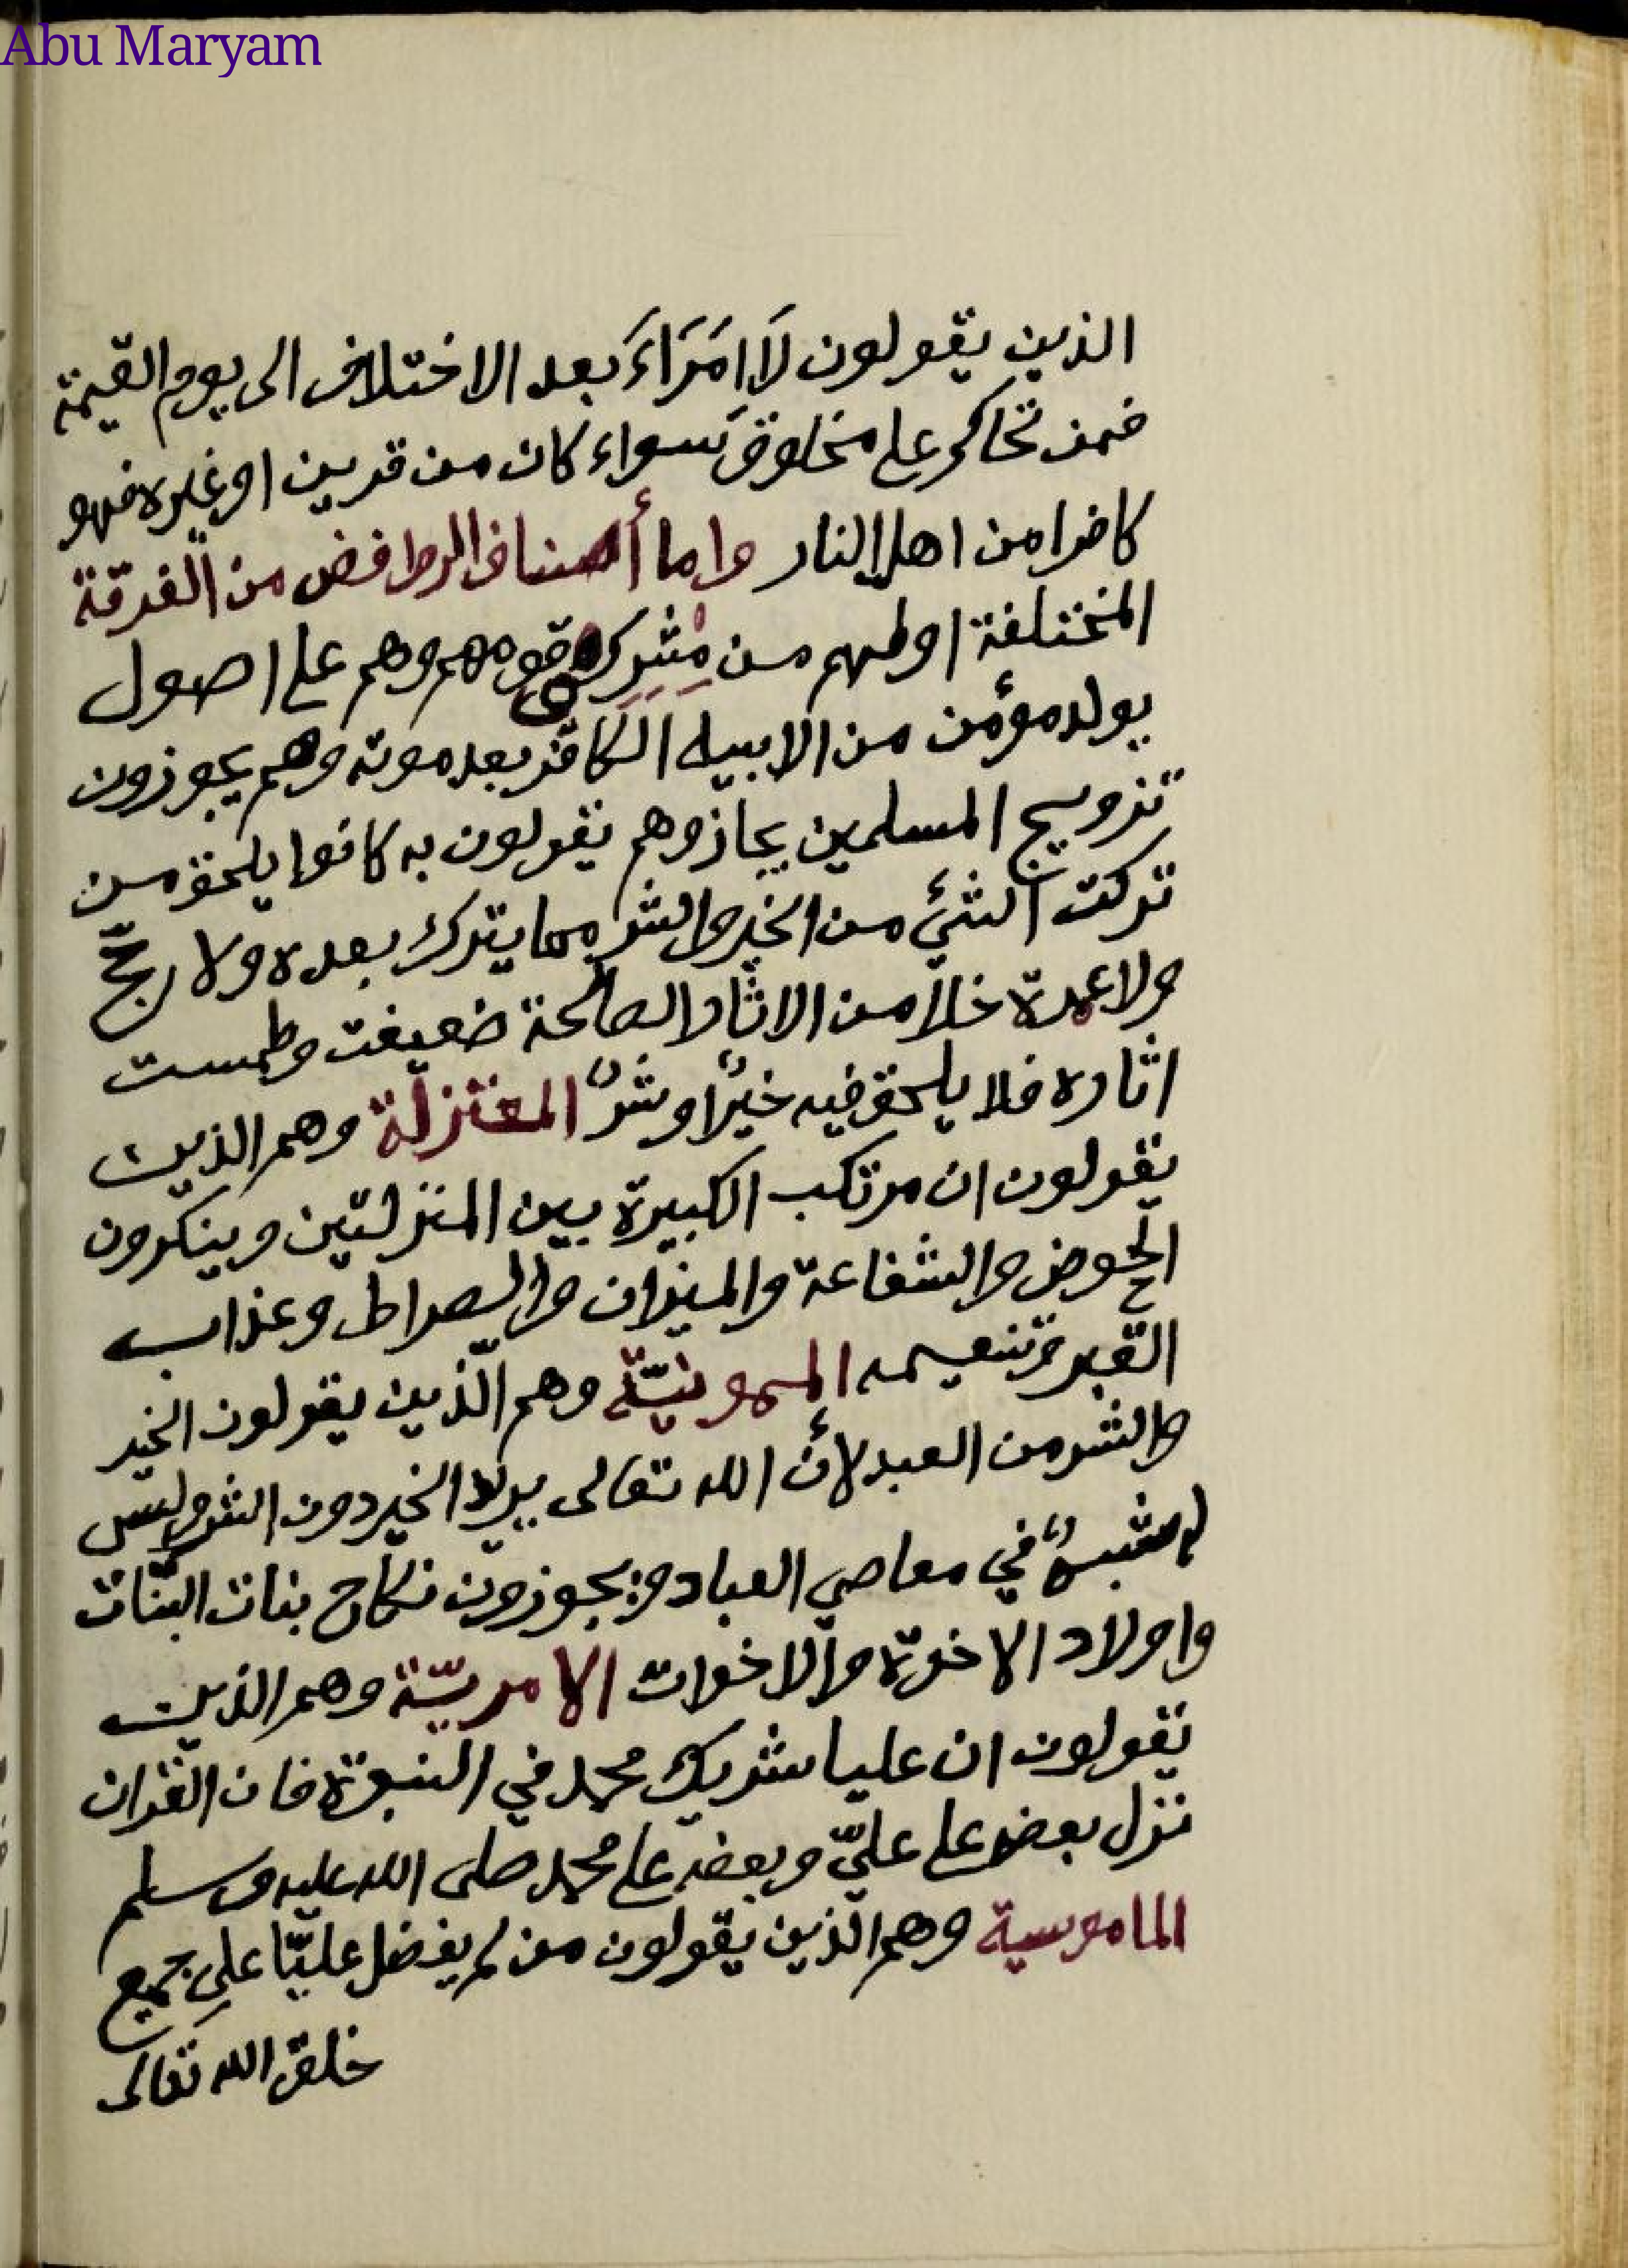 Abu Maryam
الذين يقولون لَا اِمَرَاءَ بعد الاختلاف الى يوم القيمة
فمن تحاكر على مخلوق سواء كان من قرين او غيره فهو
كافرا من اهل النار واما أصناف الروافض من الفرقة
المختلفة اولهم من قومهم وهم على اصول
يولد مؤمن من الابيه الكافر بعد موته وهم يجوزون
تزويج المسلمين يجازوهم يقولون به كانوا يلحق من
تركت الشئ من الخير والشر مما يترك بعده ولا
ولا عمدة خلا من الاثار الصالحة ضعيفت وطمست
اثاره فلا يلحق فيه خيرًا وشرًا المعتزلة وهم الذين
يقولون ان مرتكب الكبيرة بين المنزلتين وينكرون
الحوض والشفاعة والميزان والصراط وعذاب
القبر وتنعيمه وهم الّذين يقولون الخير
والشر من العبد لأن الله تعالى يريد الخير دون الشر وليس
في معاصي العباد ويجوزون نكاح بنات البنّات
واولاد الاخوة والاخوات الامريّة وهم الذين
يقولون ان عليا شريك محمد في النبوة فان القران
نزل بعضه على عليّ وبعضه على محمد صلى الله عليه وسلم
الماموسية وهم الّذين يقولون من لم يفضل عليّا على جميع
خلق الله تعالى